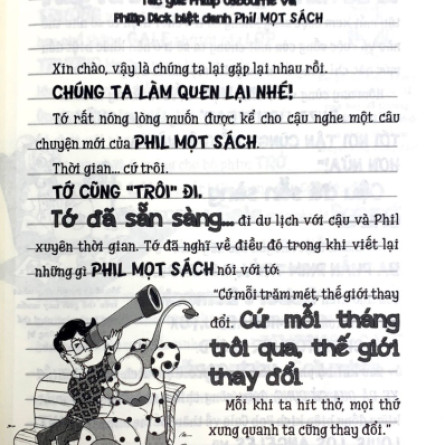 Tác giả Philip Osbourne và
Philip Dick biệt danh Phil MỌT SÁCH
Xin chào, vậy là chúng ta lại gặp lại nhau rồi.
CHÚNG TA LÀM QUEN LẠI NHÉ!
Tớ rất nóng lòng muốn được kể cho cậu nghe một câu
chuyện mới của PHIL MỌT SÁCH.
Thời gian... cứ trôi.
TỚ CŨNG "TRÔI" ĐI.
Tớ đã sẵn sàng... đi du lịch với cậu và Phil
xuyên thời gian. Tớ đã nghĩ về điều đó trong khi viết lại
những gì PHIL MỌT SÁCH nói với tớ:
"Cứ mỗi trăm mét, thế giới thay
đổi. Cứ mỗi tháng
trôi qua, thế giới
thay đổi.
Mỗi khi ta hít thở, mọi thứ
xung quanh ta cũng thay đổi."